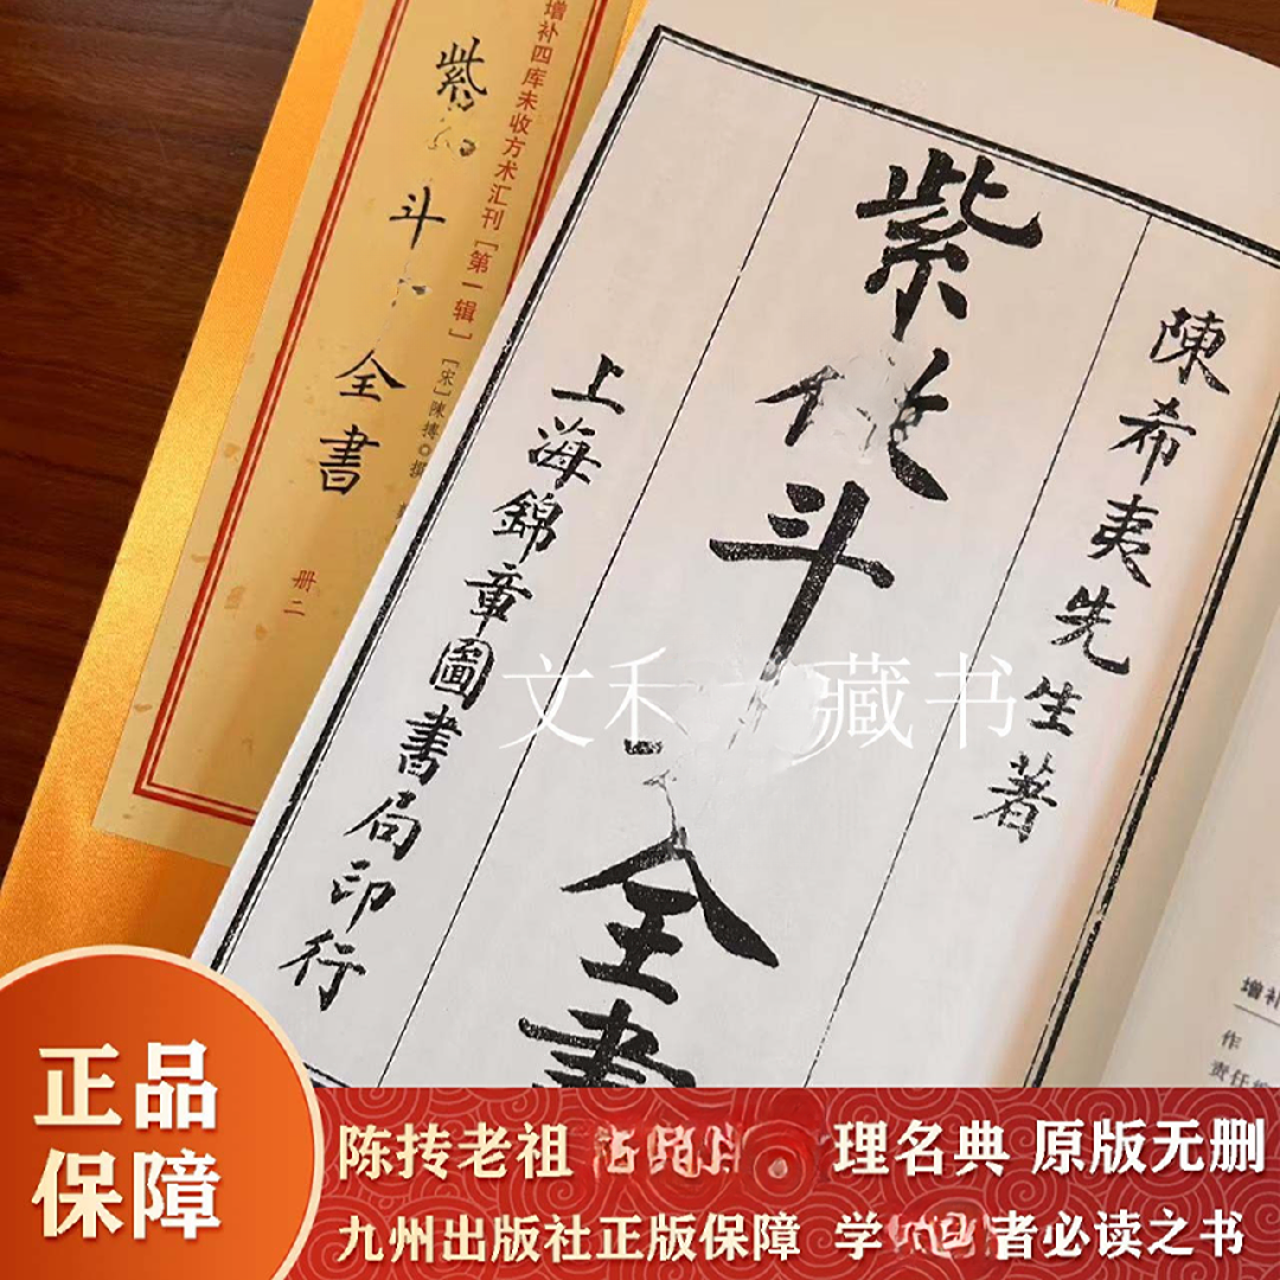 增补四库未收方术汇刊[第一辑]
[宋]陳摶◎撰
紫 斗 全書
册二
陳希夷先生著
紫 斗 全書
上海錦章圖書局印行
文禾 藏书
增补
作
责任编
正品
保障
陈抟老祖 理名典 原版无删
九州出版社正版保障 学 者必读之书